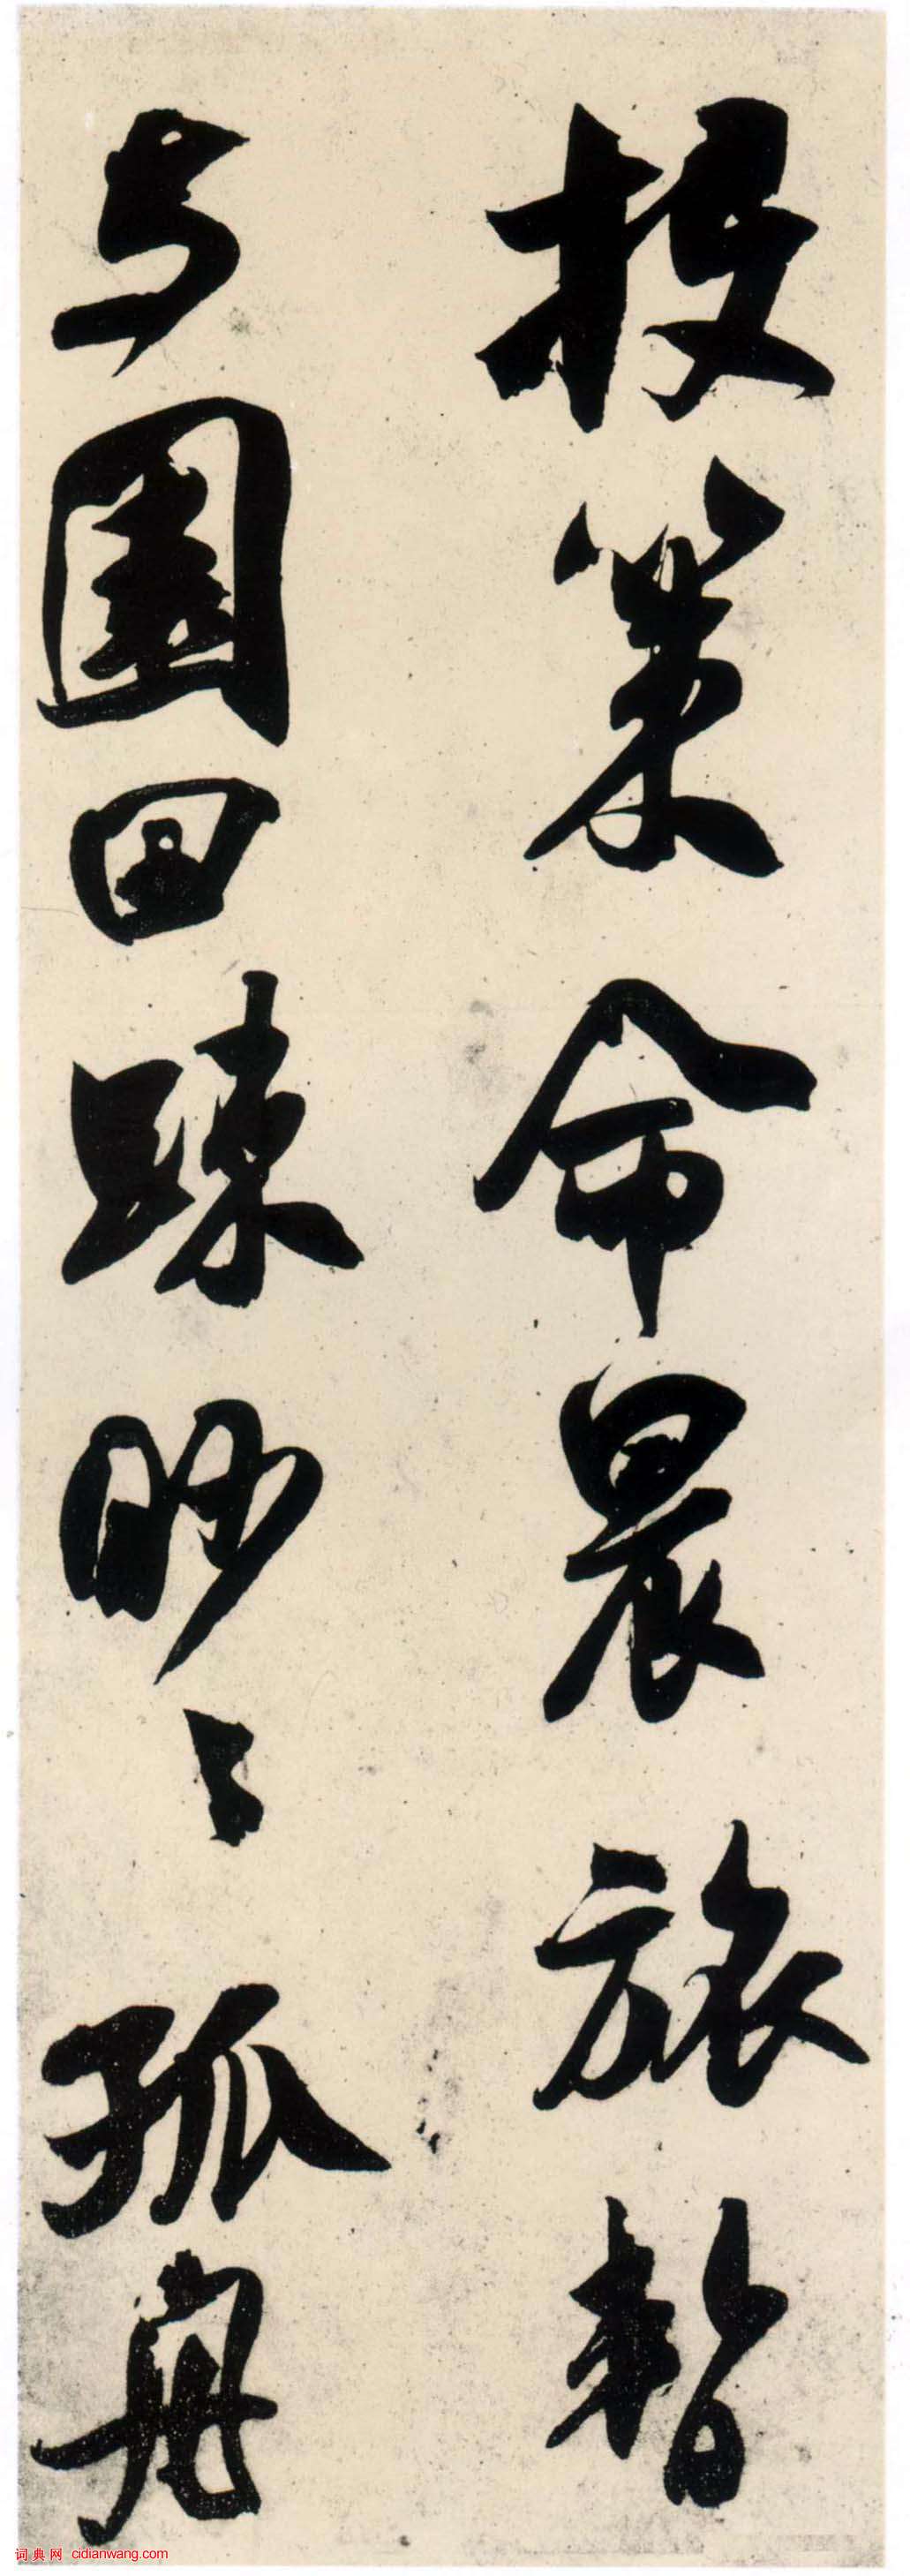 投策命晨旅暫
与園田踈眇〻孤舟
词典网 cidianwang.com